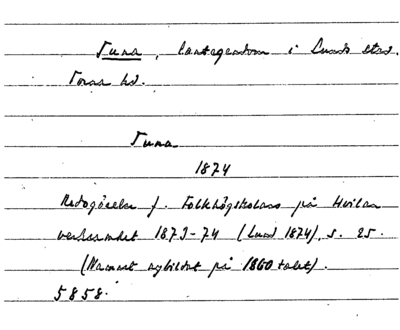 Tuna, lantegendom i Lunds stad.
Torna hd.
Tuna
1874
Redogörelse f. Folkhögskolans på Hvilan
verksamhet 1873-74 (Lund 1874), s. 25.
(Namnet nybildat på 1860 talet).
5858.